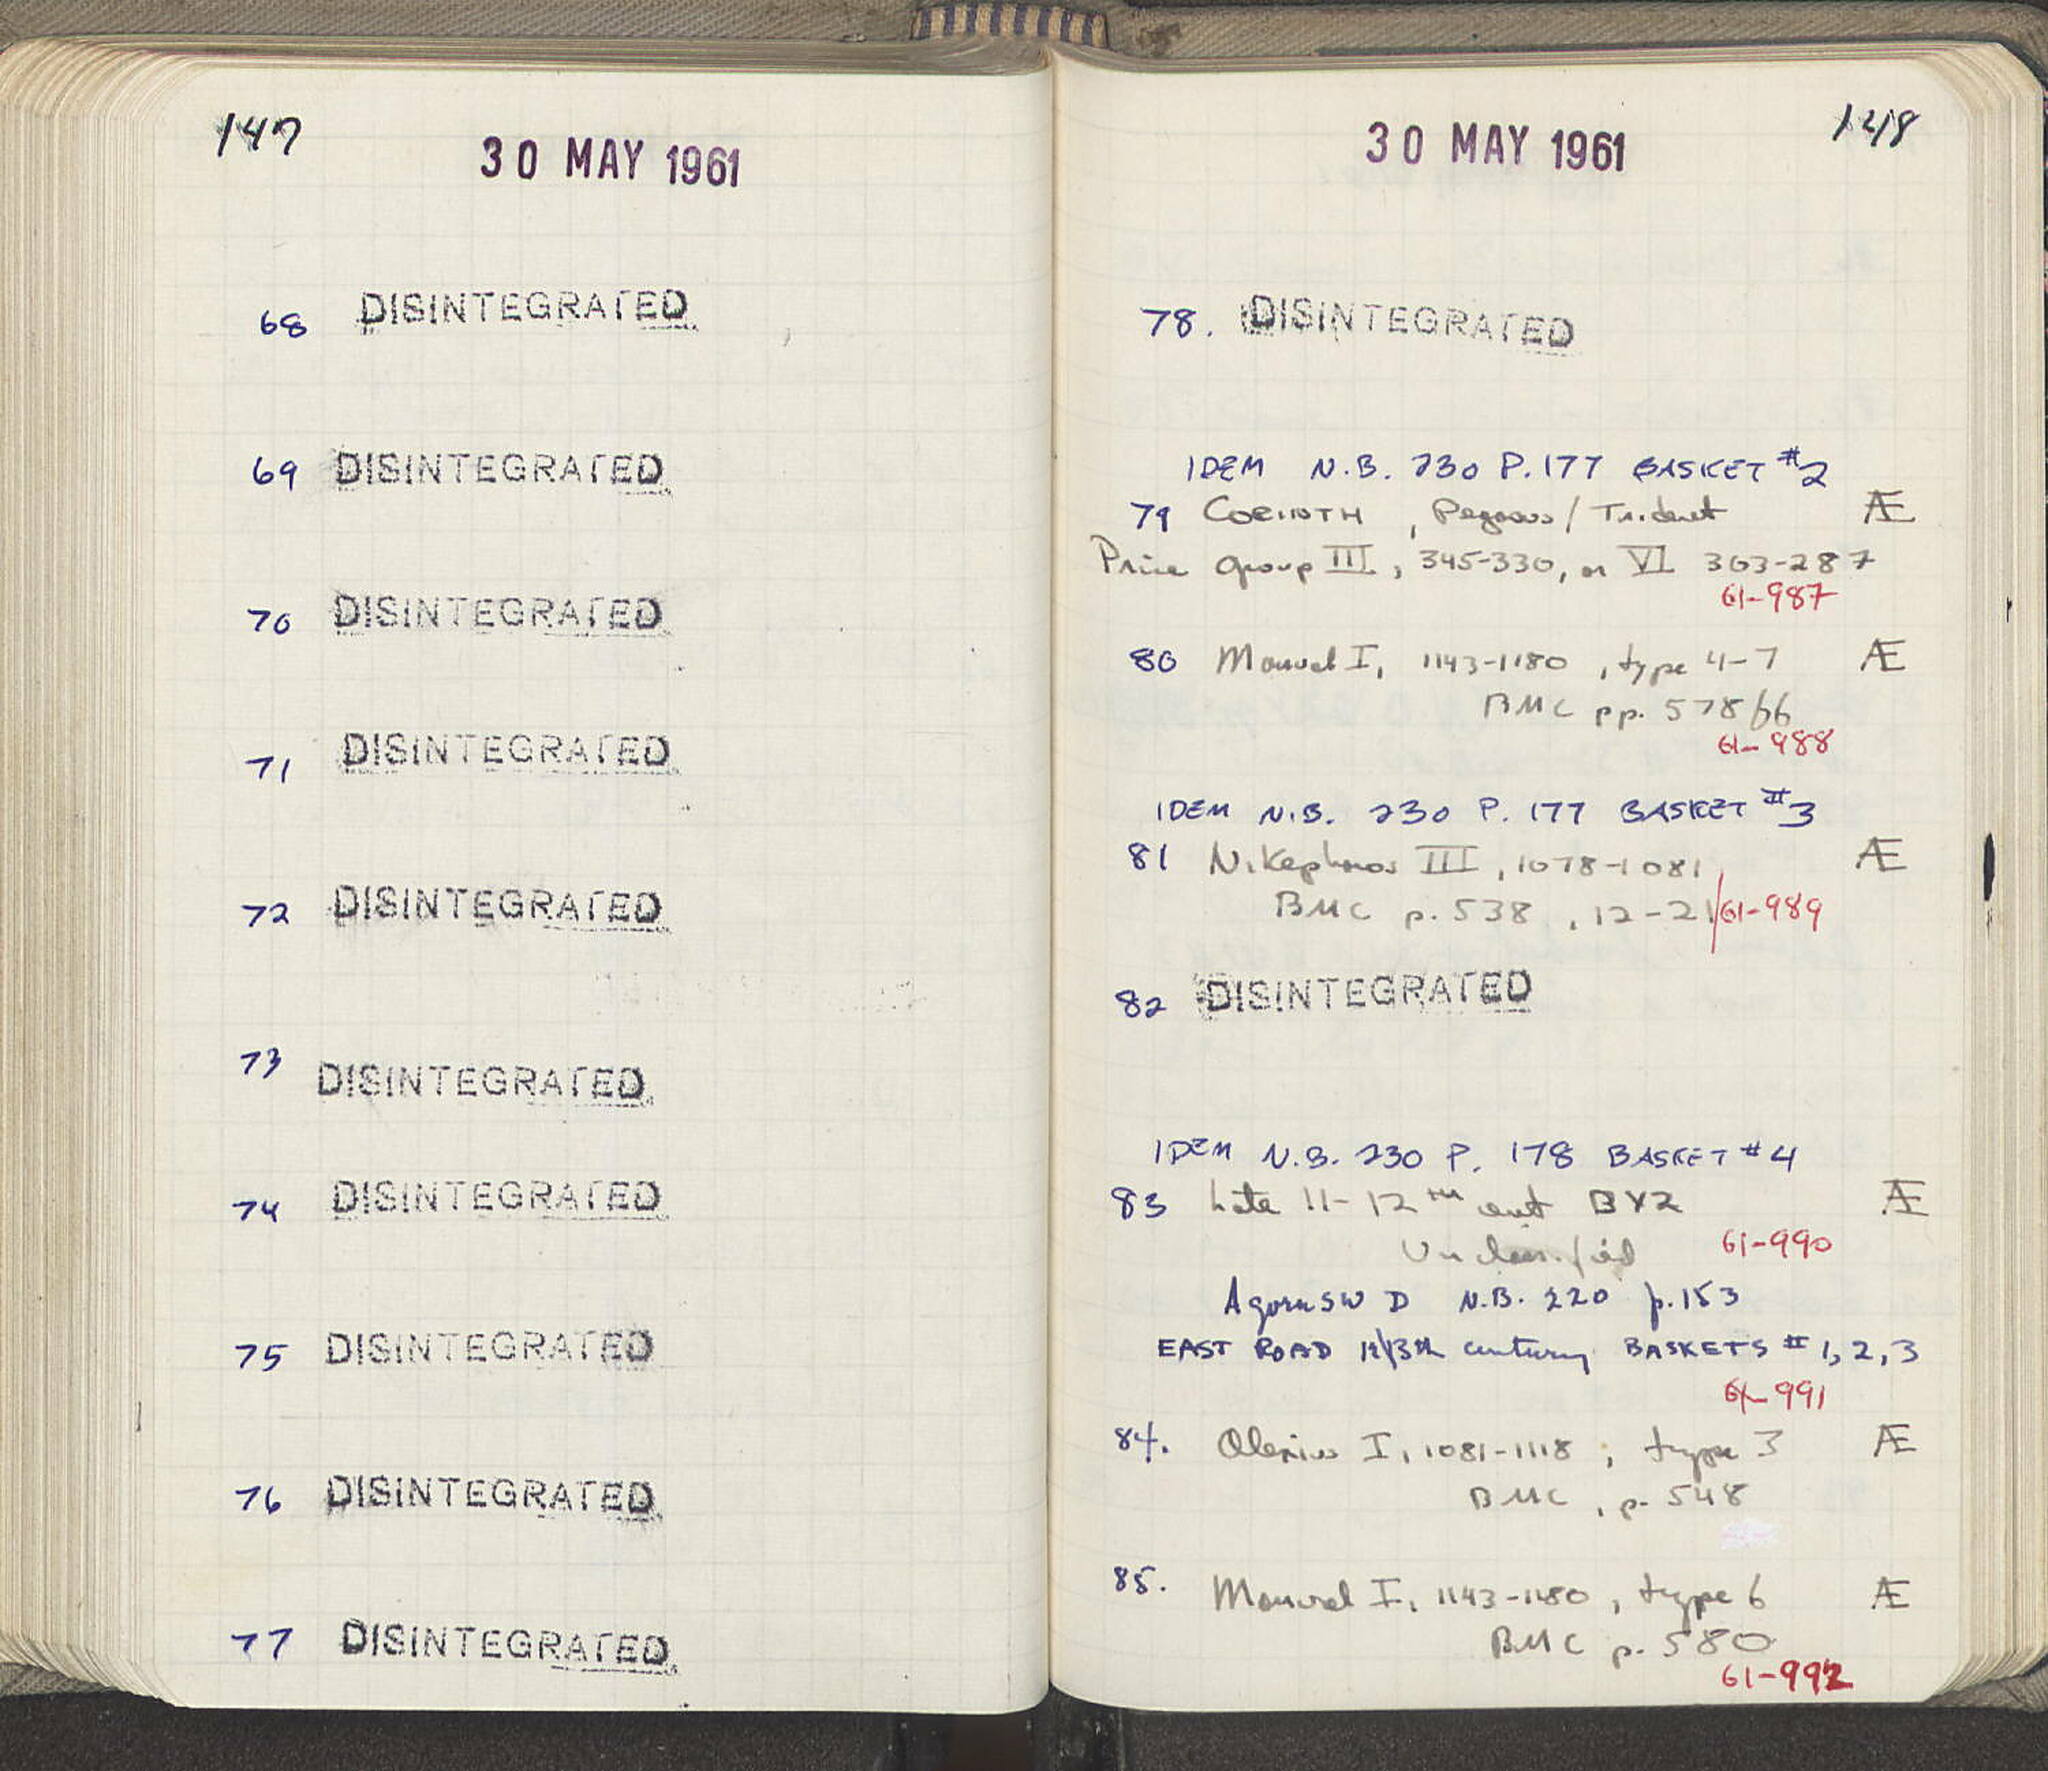 147
30 MAY 1961
68 DISINTEGRATED
69 DISINTEGRATED
70 DISINTEGRATED
71 DISINTEGRATED
72 DISINTEGRATED
73 DISINTEGRATED
74 DISINTEGRATED
75 DISINTEGRATED
76 DISINTEGRATED
77 DISINTEGRATED
148
30 MAY 1961
78. DISINTEGRATED
IDEM N.B. 230 P. 177 BASKET #2
79 CORINTH, Pegasus / Trident Æ
Price group III, 345-330, or VI 303-287
61-987
80 Manuel I, 1143-1180, type 4-7 Æ
BMC pp. 578/66
61-988
IDEM N.B. 230 P. 177 BASKET #3
81 Nikephoros III, 1078-1081, Æ
BMC p. 538, 12-21 61-989
82 DISINTEGRATED
IDEM N.B. 230 P. 178 BASKET #4
83 Late 11-12TH cent BYZ Æ
Unclassified 61-990
Agora SW D N.B. 220 p. 153
EAST ROAD 12/13th century BASKETS # 1, 2, 3
61-991
84. Alexius I, 1081-1118, type 3 Æ
BMC, p. 548
85. Manuel I, 1143-1180, type 6 Æ
BMC p. 580
61-992